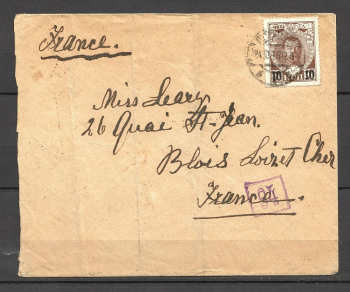 France.
10 10
Miss Leary
26 Quai St-Jean.
Blois Loiret Cher
France.